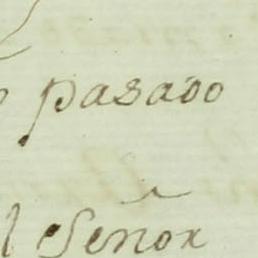 pasado
Señor